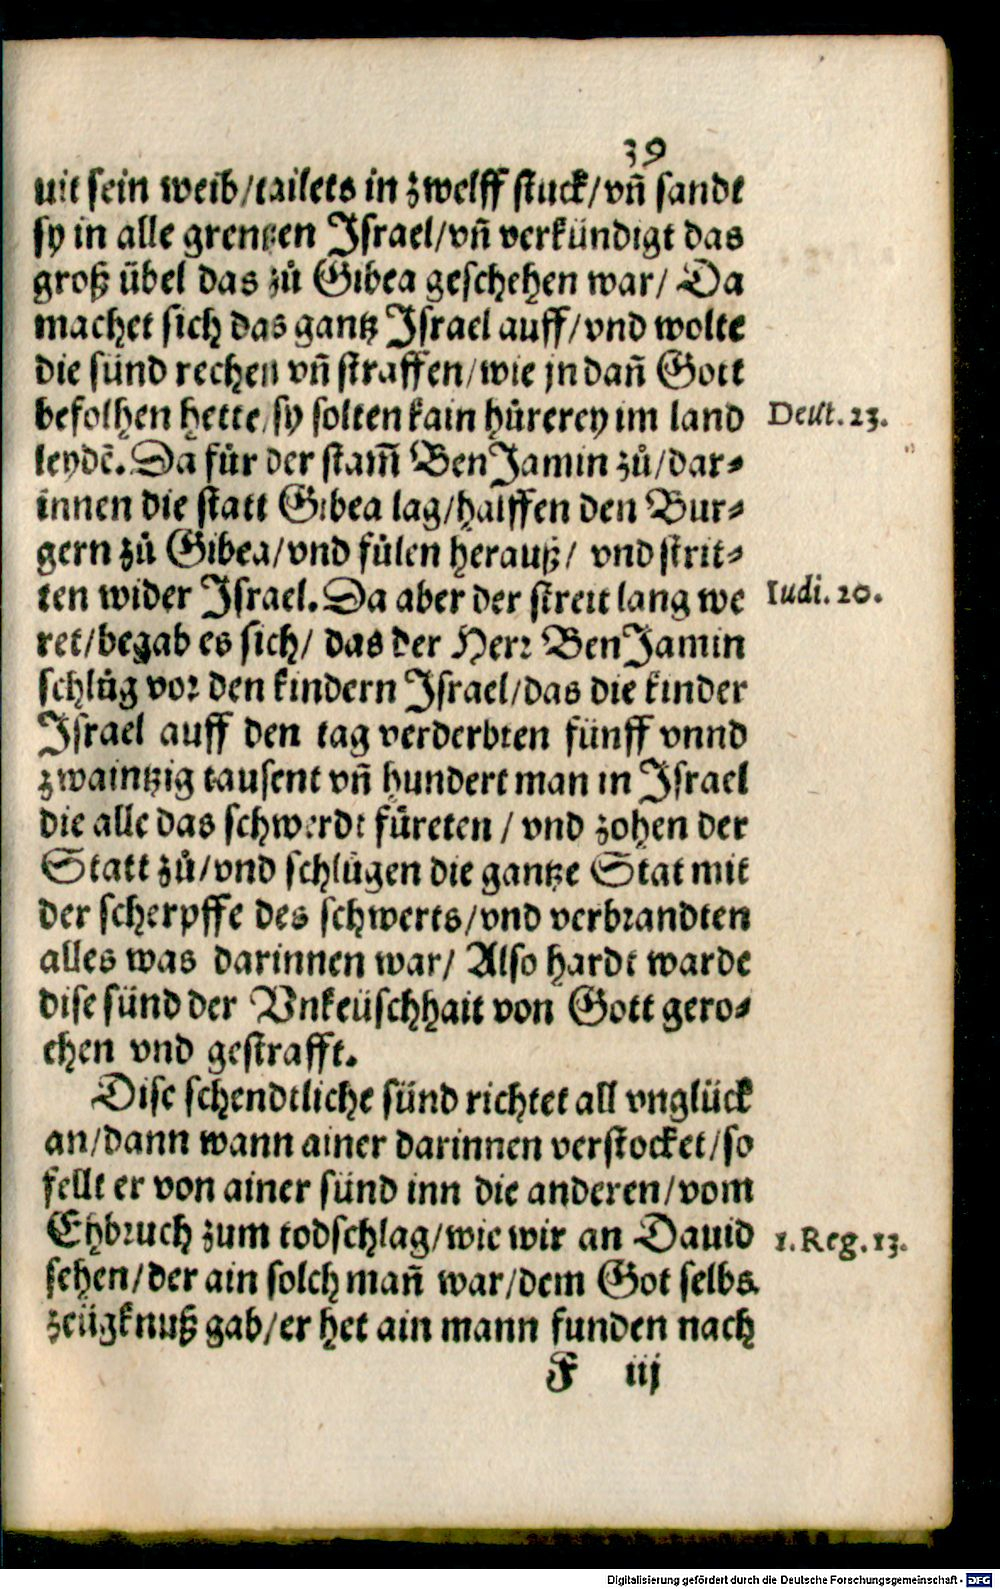 39
uit sein weib/tailets in zwelff stuck/vñ sandt
sy in alle grentzen Israel/vñ verkündigt das
groß übel das zů Gibea geschehen war/ Da
machet sich das gantz Israel auff/vnd wolte
die sünd rechen vñ straffen/wie jn dañ Gott
befolhen hette/sy solten kain hůrerey im land
Deut. 23.
leydẽ. Da für der stam̃ BenJamin zů/dar-
innen die statt Gibea lag/halffen den Bur-
gern zů Gibea/vnd fülen herauß/ vnd strit-
ten wider Israel. Da aber der streit lang we
Iudi. 20.
ret/begab es sich/ das der Herr BenJamin
schlůg vor den kindern Israel/das die kinder
Israel auff den tag verderbten fünff vnnd
zwaintzig tausent vñ hundert man in Israel
die alle das schwerdt fůreten / vnd zohen der
Statt zů/vnd schlůgen die gantze Stat mit
der scherpffe des schwerts/vnd verbrandten
alles was darinnen war/ Also hardt warde
dise sünd der Vnkeüschhait von Gott gero-
chen vnd gestrafft.
Dise schendtliche sünd richtet all vnglück
an/dann wann ainer darinnen verstocket/so
fellt er von ainer sünd inn die anderen/vom
Ehbruch zum todschlag/wie wir an Dauid
1. Reg. 13.
sehen/der ain solch mañ war/dem Got selbs
zeügknuß gab/er het ain mann funden nach
F iij
Digitalisierung gefördert durch die Deutsche Forschungsgemeinschaft - DFG